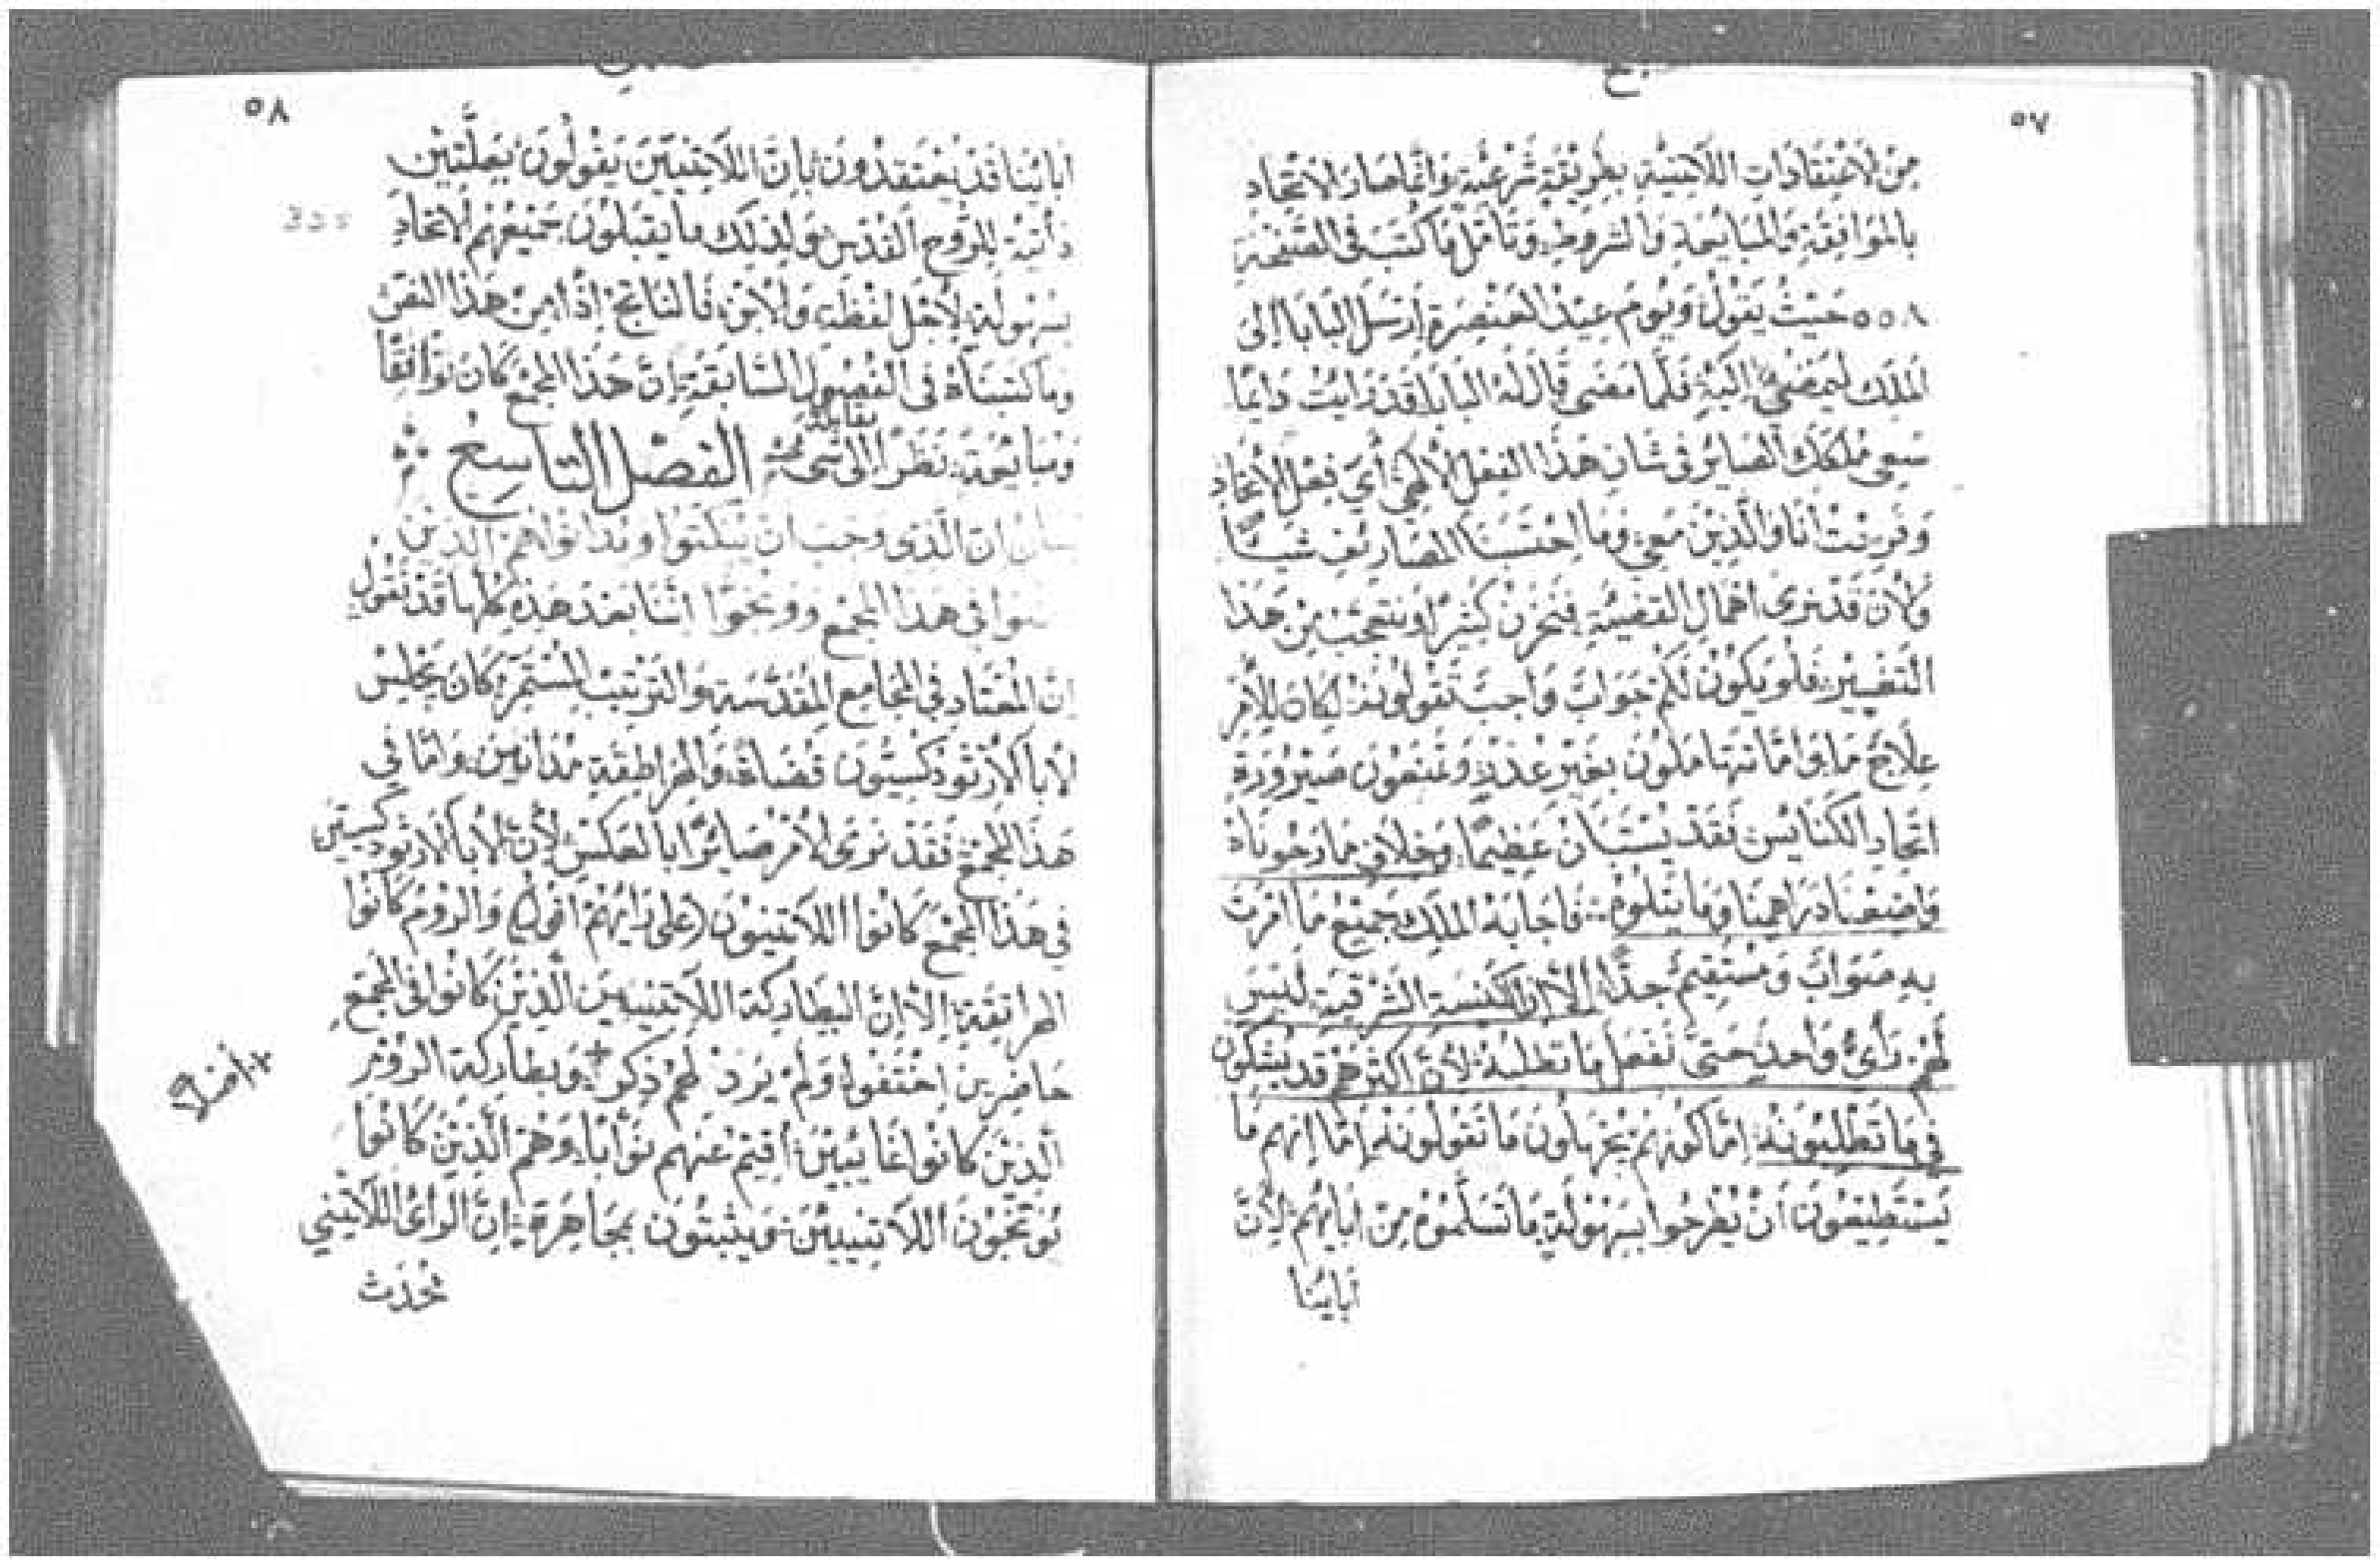 ٥٧
من الاعتقادات اللاتينية بطريقة شرعية وانما صار الاتحاد
بالموافقة والمبايعة والشروط وتامل ما كتب في الصفحة
٥٥٨ حيث يقول ويوم عيد العنصرة ارسل البابا الى
الملك ليمضي اليه فلما مضى قال له البابا قد رايت دايما
سعي ملكك الصاير في شان هذا الفعل الالهي أي فعل الاتحاد
وفرحت أنا والذين معي وما احتسبنا المصاريف شيئا
والان قد نرى اهمال القضية فنحزن كثيرا ونتعجب من هذا
التغيير فلو يكون لكم جواب واجب تقولونه لكان للأمر
علاج ما واما تتهاملون بغير عذر وتمنعون صيرورة
اتحاد الكنايس فقد يستبان عظيما وخلاف ما رجوناه
واضعنا دراهمنا وما يتلوه فاجابه الملك جميع ما امرت
به صواب ومستقيم جدا إلا ان الكنيسة الشرقية ليس
لهم رأي واحد حتى نفعل ما تطلبه لأن اكثرهم قد يشكون
في ما تطلبونه اما كونهم يجهلون ما تقولونه اما انهم ما
يستطيعون أن يطرحوا بسهولة ما تسلموه من ابايهم لأن
أبايئنا
٥٨
ابائنا قد يعتقدون بان اللاتينيين يقولون بعلتين
ذاتية للروح القدس ولذلك ما يقبلون جميعهم الاتحاد
بسهولة لأجل لفظة والابن فالناتج اذا من هذا النص
وما كتبناه في الفصول السابقة ان هذا المجمع كان توافقا
ومبايعة نظرا الى شي يقابله الفصل التاسع
ان الذي وجب ان يبكتوا ويدانوا هم الذين
في هذا المجمع ووبخوا اننا بعد هذه كلها قد نقول
ان المعتاد في المجامع المقدسة والترتيب المستمر كان يجلس
الابا الارتودكسيون قضاة والهراطقة مدانين واما في
هذا المجمع فقد نرى الأمر صائرا بالعكس لأن الابا الارتودكسيين
في هذا المجمع كانوا اللاتينيون (على رايهم اقول) والروم كانوا
الهراطقة إلا ان البطاركة اللاتينيين الذين كانوا في المجمع
حاضرين اختفوا ولم يرد لهم ذكر + وبطاركة الروم
+ أصلا
الذين كانوا غائبين أقيم عنهم نوابا وهم الذين كانوا
يوبخون اللاتينيين ويثبتون بمجاهرة ان الرأي اللاتيني
محدث